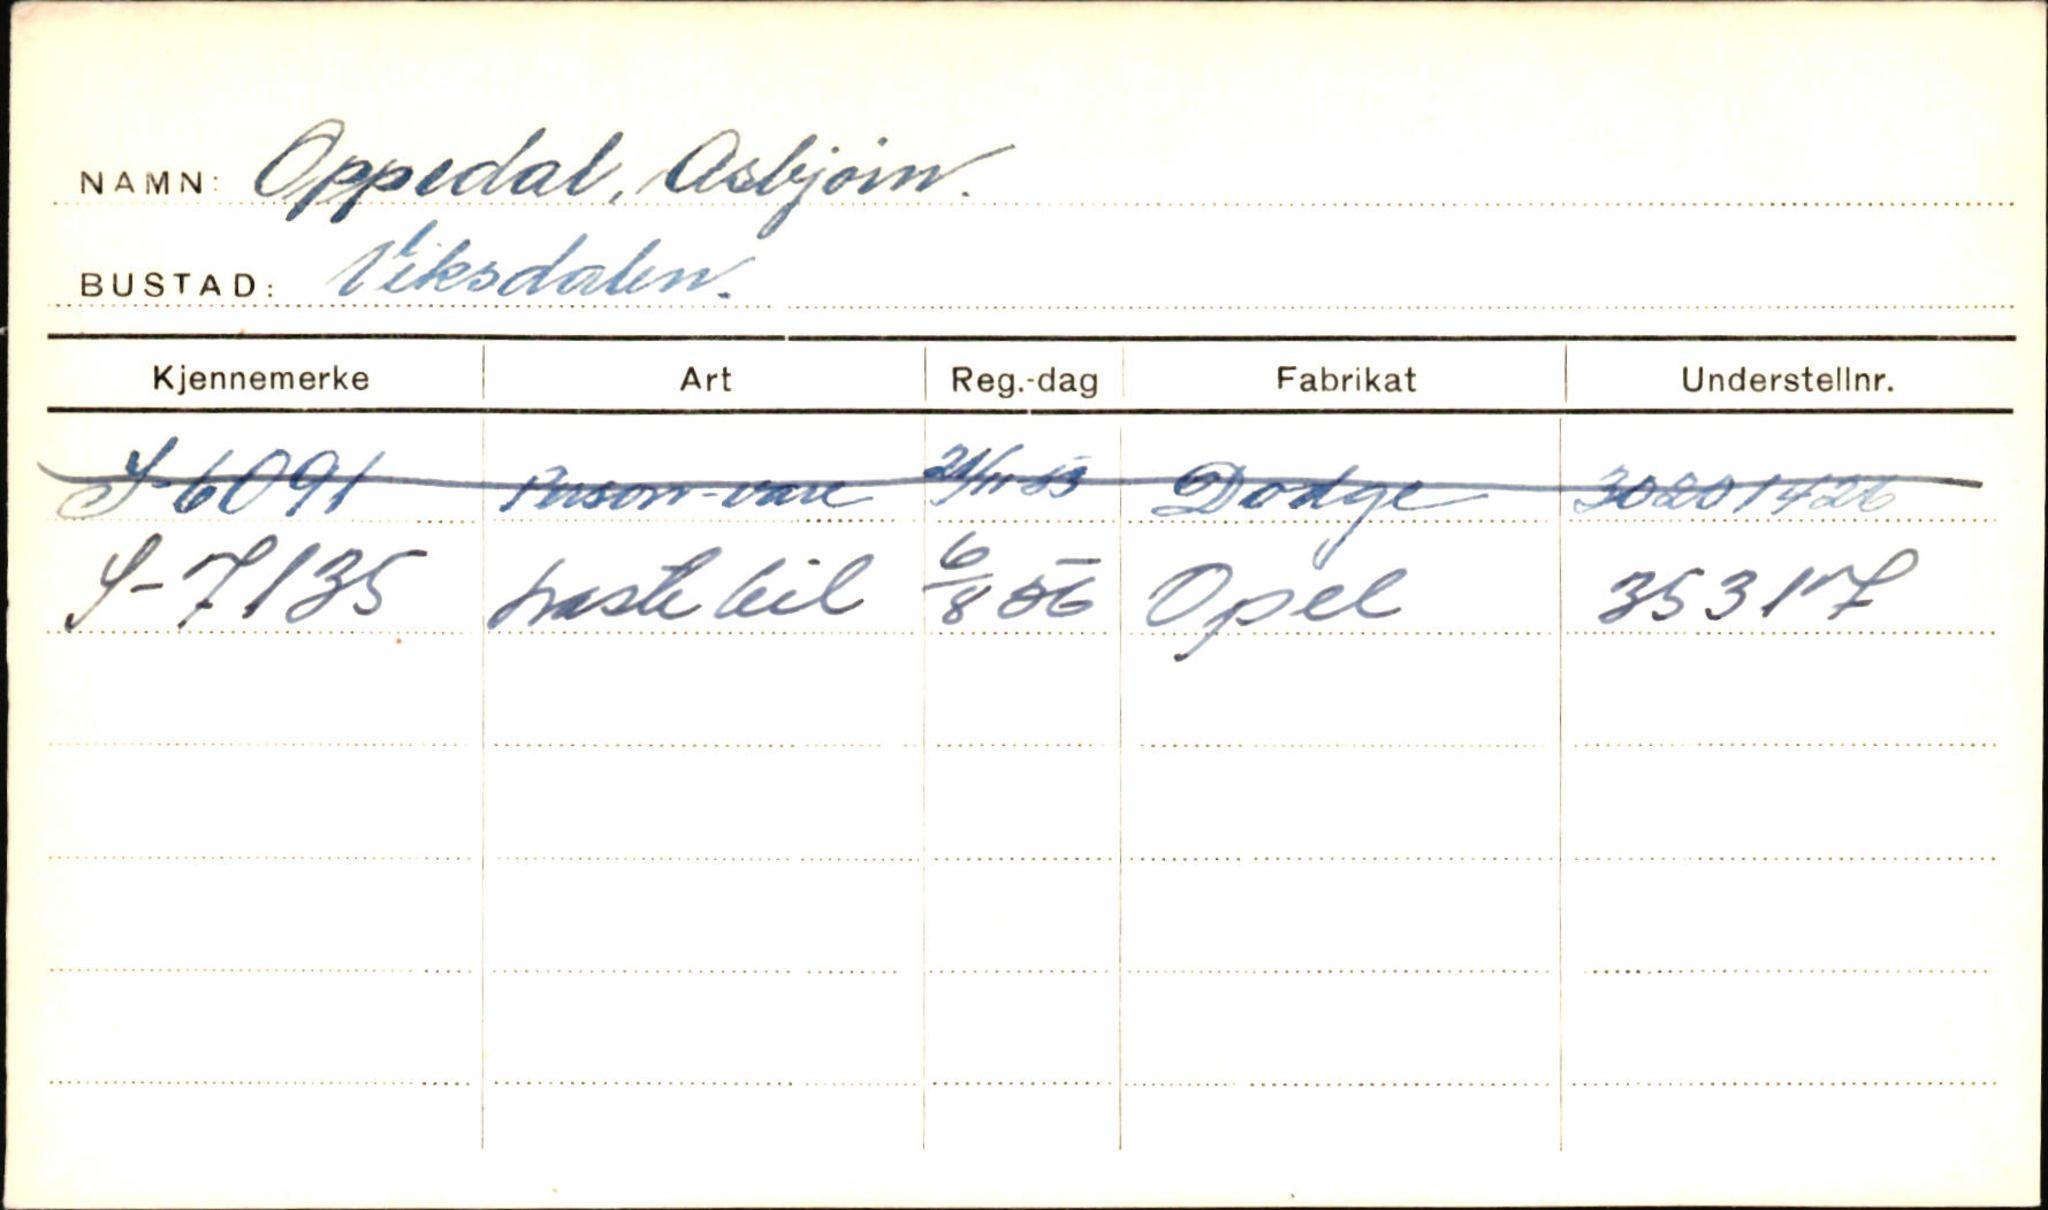 NAMN: Oppedal, Asbjørn.
BUSTAD: Viksdalen.
Kjennemerke Art Reg.-dag Fabrikat Understellnr.
S-6091 Person-vare 21/11-53 Dodge 30201426
S-7135 Lastebil 6/8 56 Opel 35317